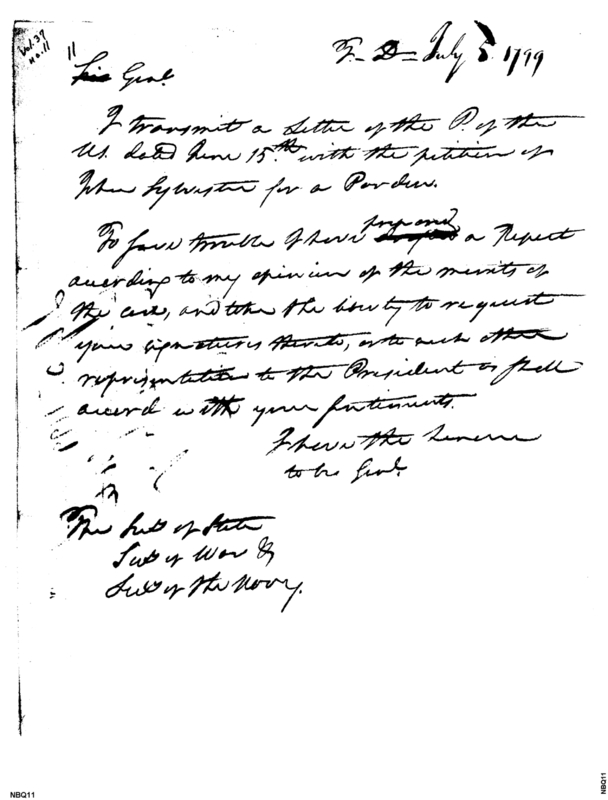 Vol. 37
No. 11
11
T. D. July 5. 1799
Sir Gent.
I transmit a Letter of the P. of the
US. dated June 15.th with the petition of
John Sylvester for a Pardon.
To save trouble I have prepared a Report
according to my opinion of the merits of
the case, and take the liberty to request
your signatures thereto, or to such other
representation to the President as shall
accord with your sentiments.
I have the honor
to be Gent.
The Sec.y of State
Sec.y of War &
Sec.y of the Navy.
NBQ11
NBQ11